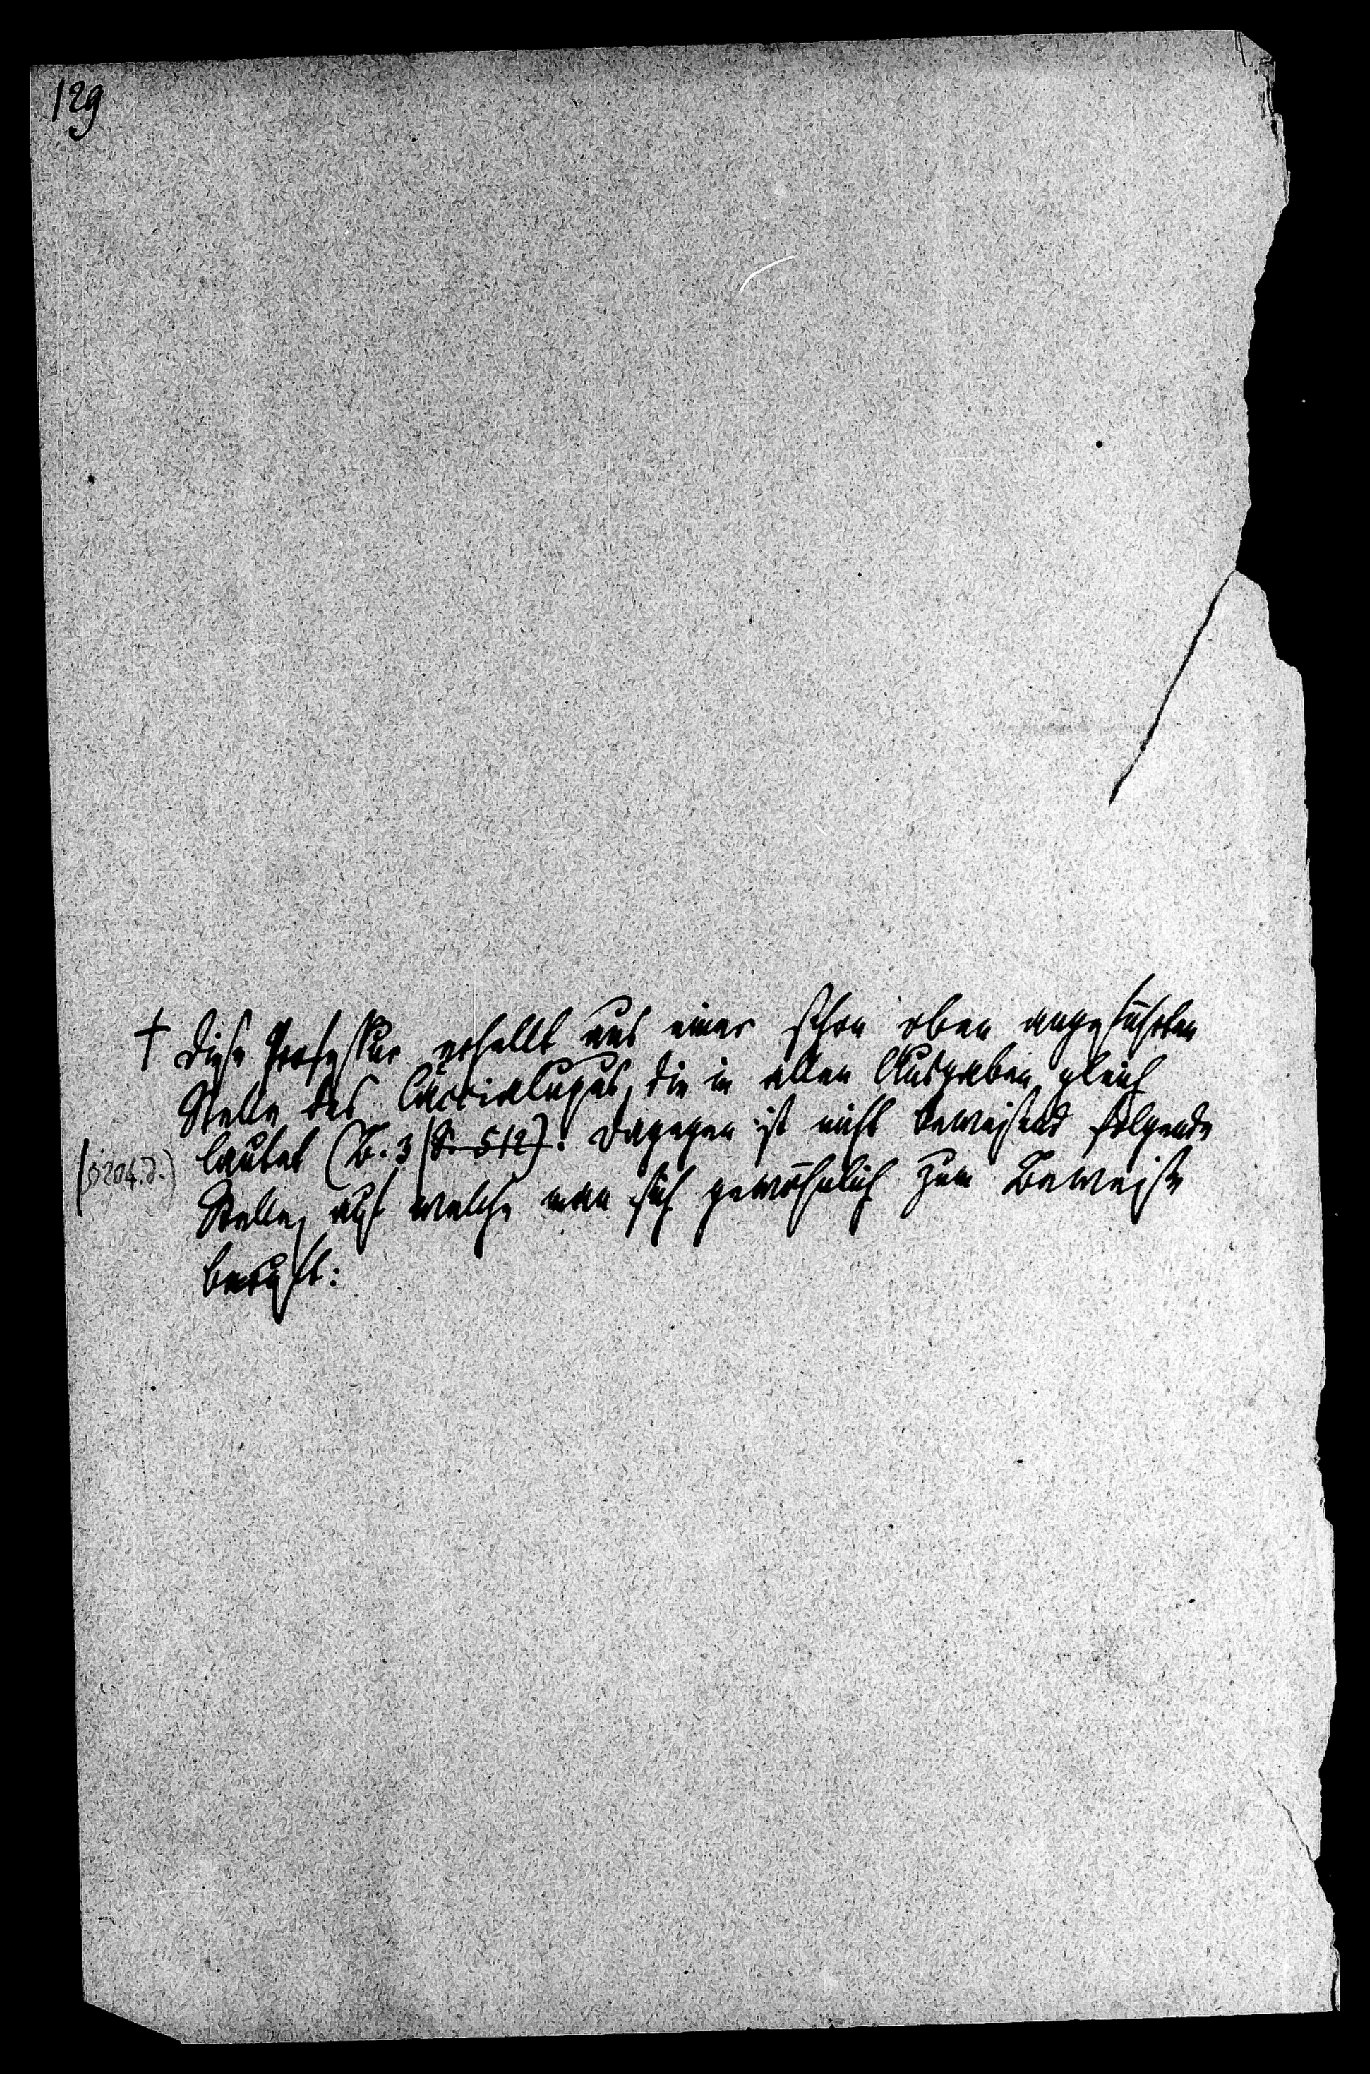 129
† Diese Professur erhellt aus einer schon oben angeführten
Stelle des Caccialupus, die in allen Ausgaben gleich
lautet (B. 3 S. 512). Dagegen ist nicht beweisend folgende
(§ 204. d.)
Stelle, auf welche man sich gewöhnlich zum Beweise
beruft: